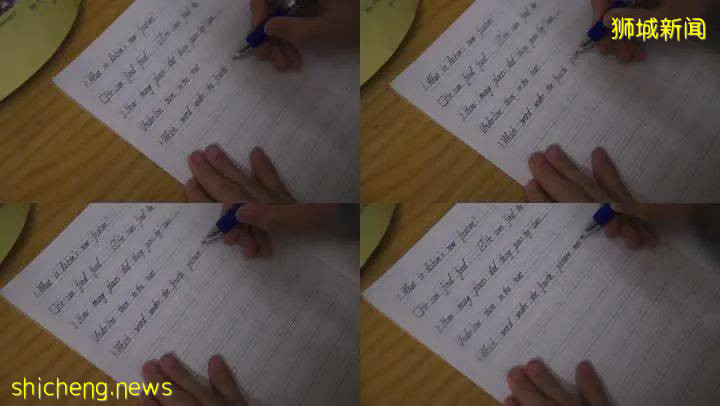 狮城新闻
1. What is Robin's new
He can find food. He can find the
2. How many places did they pass by
Underline them in the text
3. Which word under the fourth
1. What is Robin's new
He can find food. He can find the
2. How many places did they pass by
Underline them in the text
3. Which word under the fourth
1. What is Robin's new
He can find food. He can find the
2. How many places did they pass by
Underline them in the text
3. Which word under the fourth picture
1. What is Robin's new
He can find food. He can find the
2. How many places did they pass by
Underline them in the text
3. Which word under the fourth picture
shicheng.news